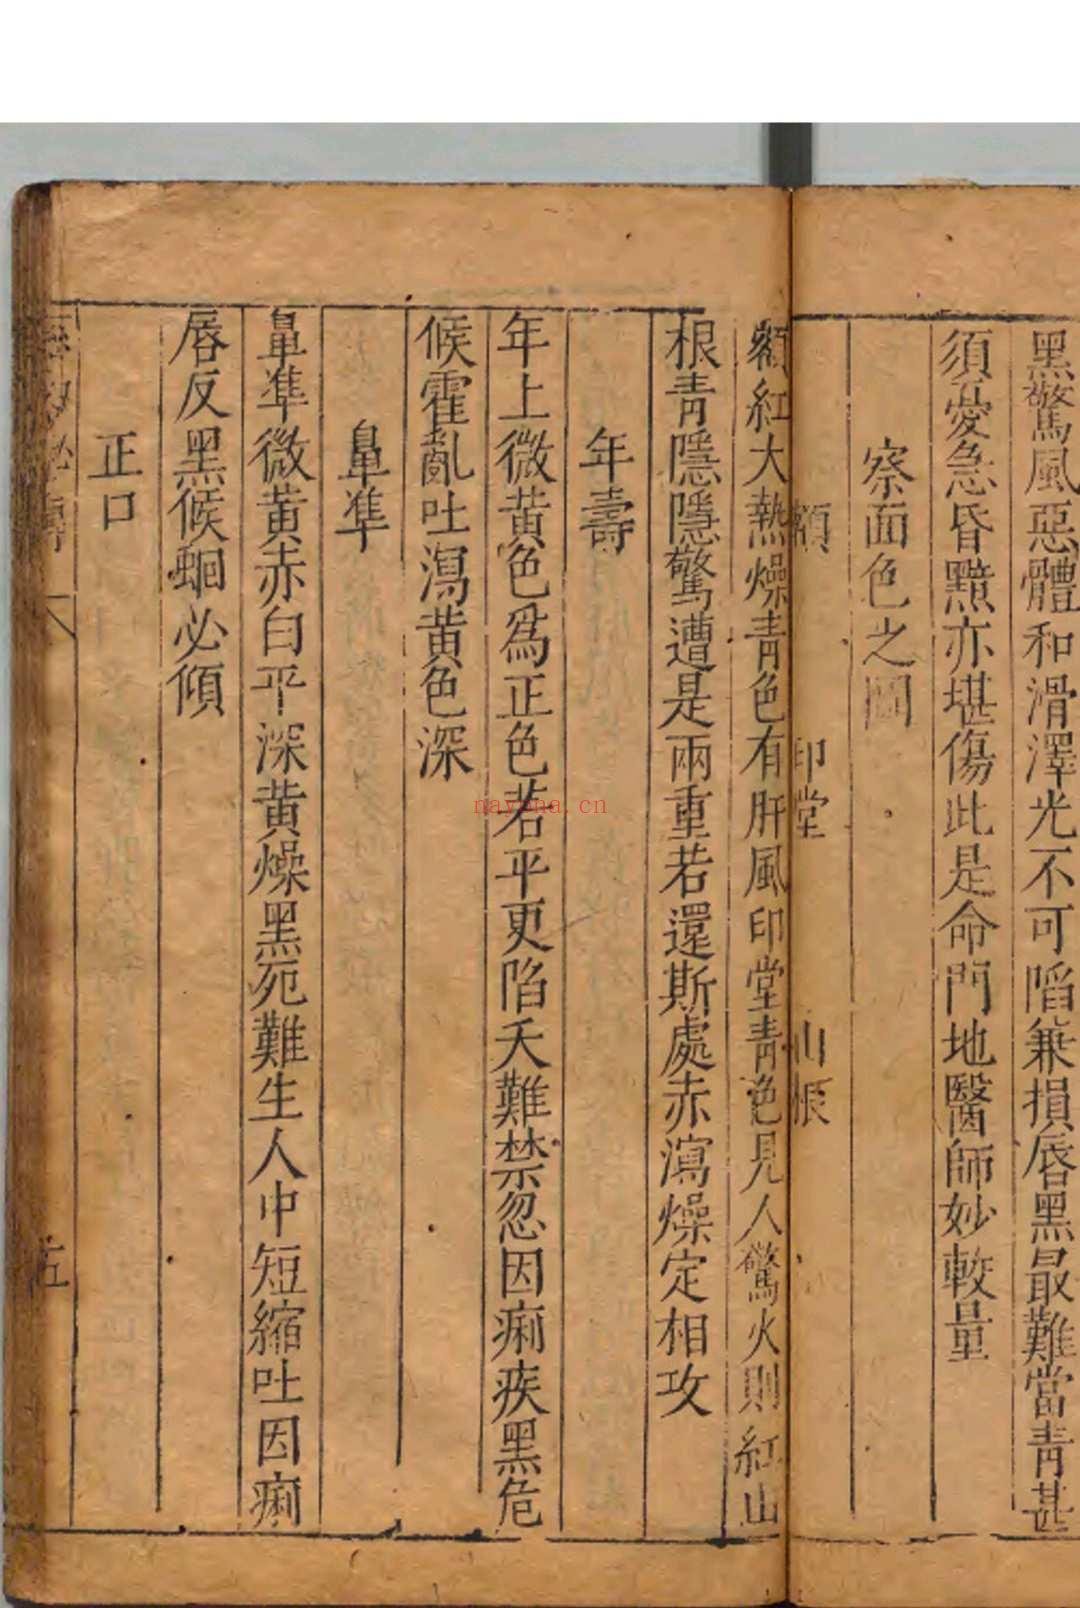 黑驚風惡體和滑澤光不可陷兼損唇黑最難當青甚
須憂急昏黯亦堪傷此是命門地醫師妙較量
察面色之圖
額 印堂 山根
額紅大熱燥青色有肝風印堂青色見人驚火則紅山
根青隱隱驚遭是兩重若還斯處赤瀉燥定相攻
年壽
年上微黃色爲正色若平更陷夭難禁忽因痢疾黑危
候霍亂吐瀉黃色深
鼻準
鼻準微黃赤白平深黃燥黑死難生人中短縮吐因痢
唇反黑候蛔必傾
正口
五
nayona.cn